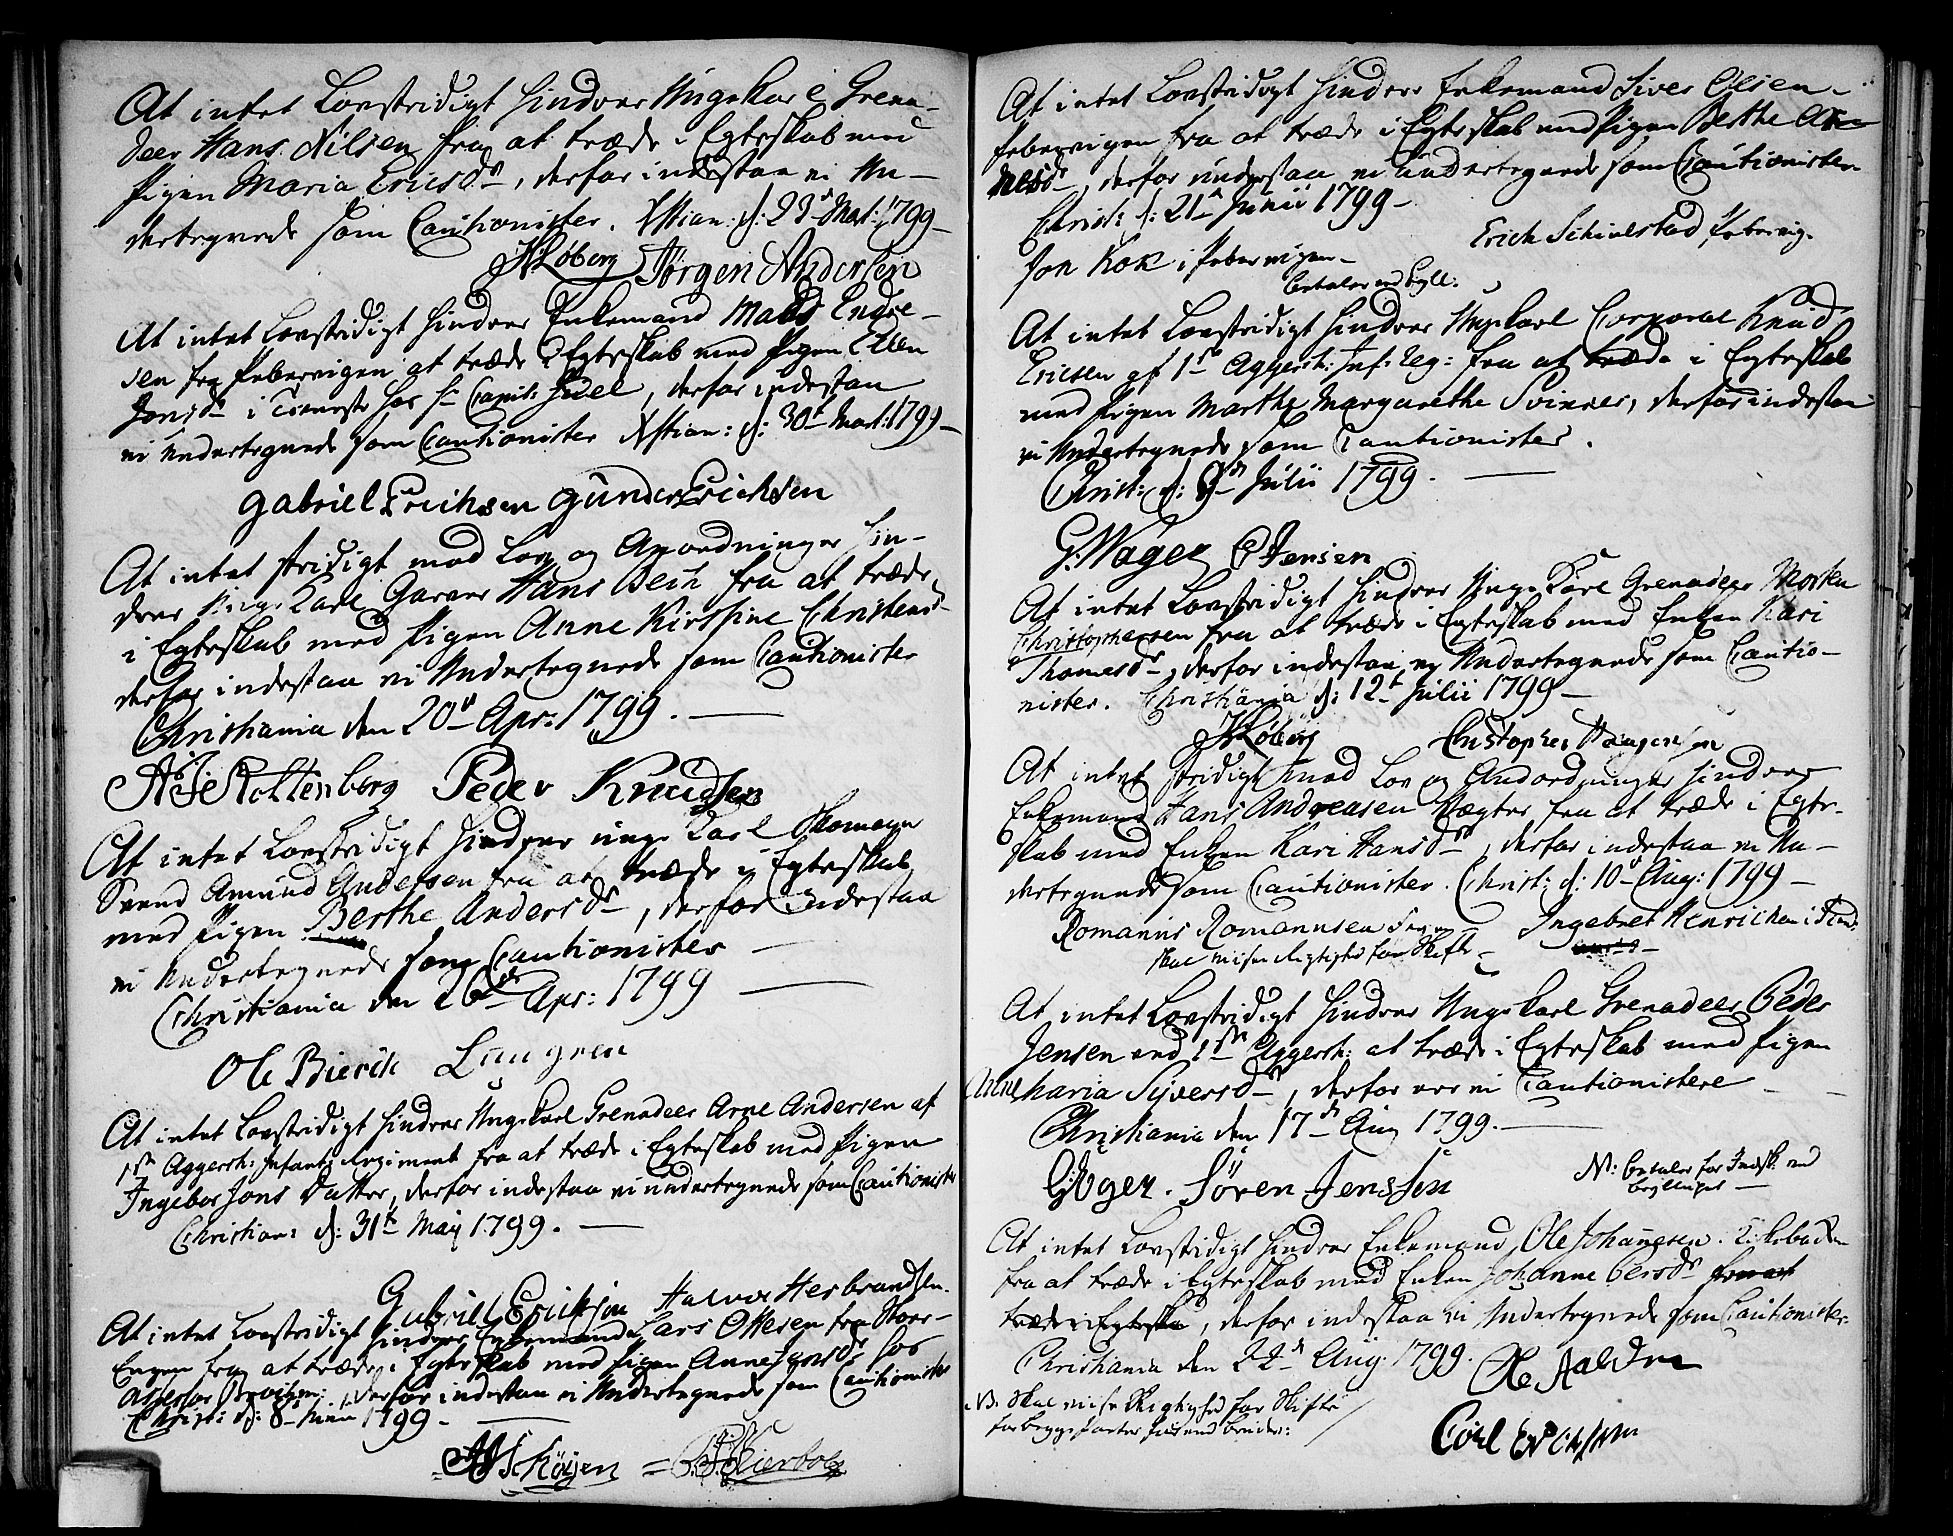 At intet Lovstridigt hindrer Ungekarl Grena-
deer Hans Nilsen fra at træde i Egteskab med
Pigen Maria Ericsdr, derfor indestaa vi Un-
dertegnede som Cautionister. Xstian: d: 23de Mart: 1799
Røberg Jørgen Andersen
At intet Lovstridigt hindrer Enkemand Mads Endre-
sen fra Pebervigen at træde i Egteskab med Pigen Ellen
Jonsdr i Tieneste hos Hr Capit: Juel, derfor indestaa
vi Undertegnede som Cautionister Xstian: d: 30t Mart: 1799
Gabriel Erichsen Gunder Erichsen
At intet stridigt mod Lov og Anordninger hin-
drer Unge Karl Garver Hans Bech fra at træde
i Egteskab med Pigen Anne Kirstine Christensdr
derfor indestaa vi Undertegnede som Cautionister
Christiania den 20de Apr: 1799.
Rottenborg Peder Knudsen
At intet Lovstridigt hindrer unge Karl Skomager
Svend Amund Andersen fra at træde i Egteskab
med Pigen Berthe Andersdr, derfor indestaa
vi Undertegnede som Cautionister
Christiania den 26de Apr: 1799
Ole Bierch Lungreen
At intet Lovstridigt hindrer Ungekarl Grenadeer Arne Andersen af
1ste Aggersh: Infant: Regiment fra at træde i Egteskab med Pigen
Ingebor Jons Datter, derfor indestaa vi undertegnede som Cautionister
Christian: d: 31t Maij 1799.
Gabriel Eriksen Halvor Herbrandsen.
At intet Lovstridigt hindrer Enkemand Lars Ottesen fra Store-
Engen fra at træde i Egteskab med Pigen Anne Jensdr hos
Assessor derfor indestaa vi Undertegnede som Cautionister
Christ: d: 8t Junii 1799.
Schøijen
At intet Lovstridigt hindrer Enkemand Siver Olsen
Pebervigen fra at træde i Egteskab med Pigen Berthe Ar-
nesdr, derfor indestaa vi undertegnede som Cautionister
Christ: d: 21de Junii 1799
Erich Schielstad, Pebervig.
Jon Kok i Pebervigen
betaler ved Bryll:
At intet Lovstridigt hindrer Ungkarl Corporal Knud
Ericsen af 1ste Aggersh: Inf: Reg: fra at træde i Egteskab
med Pigen Marthe Margarethe Svinner, derfor indestaa
vi Undertegnede som Cautionister.
Christ: d: 9de Julii 1799.
G. Wager Jensen
At intet Lovstridigt hindrer Unge Karl Grenadeer Morten
Christophersen fra at træde i Egteskab med Enken Kari
Thomesdr, derfor indestaa vi Undertegnede som Cautio-
nister. Christiania d: 12t Julii 1799
Røberg Cristopher Haagensen
At intet stridigt mod Lov og Andordninger hindrer
Enkemand Hans Andreasen Vægter fra at træde i Egte-
skab med Enken Kari Hansdr, derfor indestaa vi Un-
dertegnede som Cautionister. Christ: d: 10de Aug: 1799
Romanus Romannsen Ingebret Henrichsen
skal vise Rigtighed for Skifte
At intet Lovstridigt hindrer Ungekarl Grenadeer Peder
Jensen ved 1ste Aggersh: at træde i Egteskab med Pigen
Anne Maria Sijversdr, derfor ere vi Cautionistere
Christiania den 17de Aug 1799.
Søren Jenssen
NB: betaler for Indsk. ved
brylluppet
At intet Lovstridigt hindrer Enkemand Ole Johannesen
fra at træde i Egteskab med Enken Johanne Persdr fra at
træde i Egteska, derfor indestaa vi Undertegnede som Cautionister
Christiania den 22de Aug: 1799.
Ole
NB. Skal vise Rigtighed for Skifte
for begge Parter
Carl Erichsen